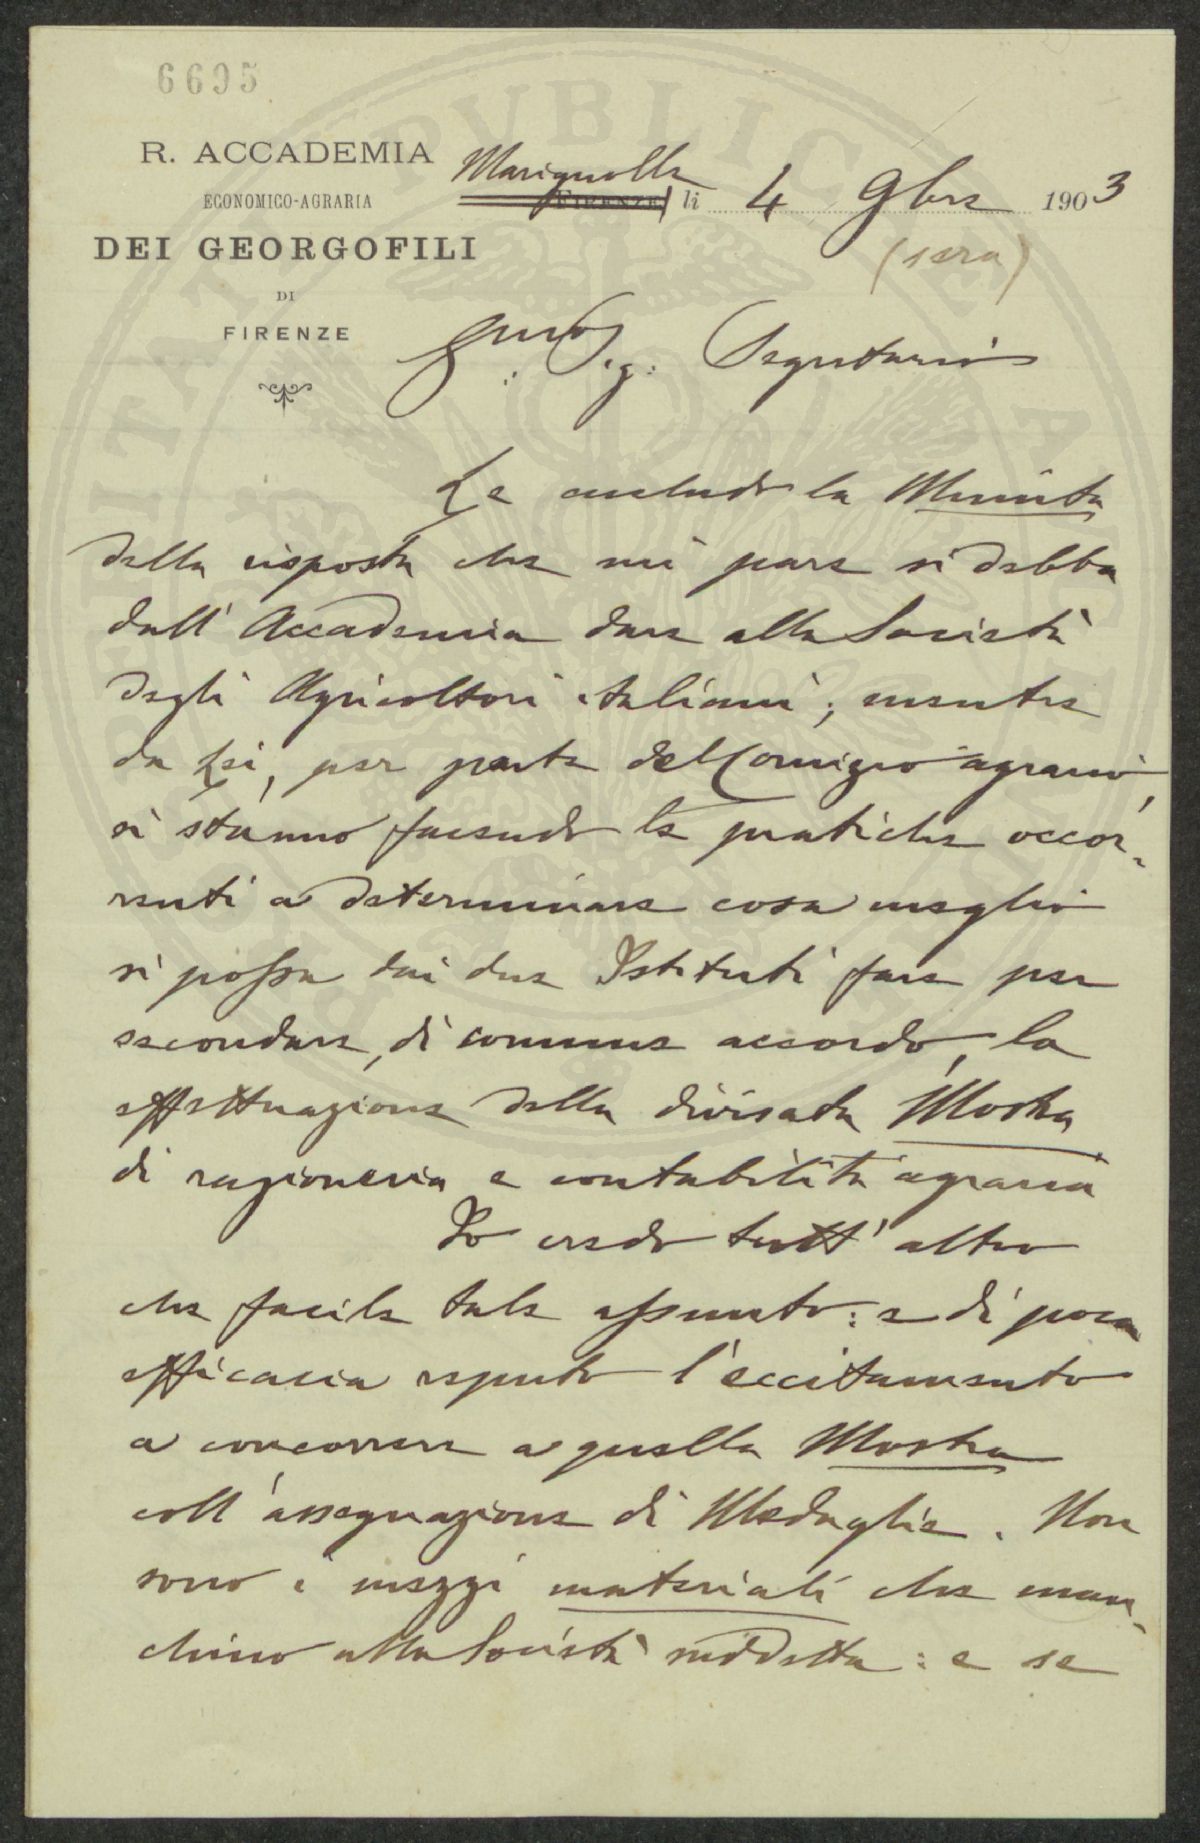 6695
R. ACCADEMIA
ECONOMICO-AGRARIA
DEI GEORGOFILI
DI
FIRENZE
Marignolle
FIRENZE, li 4 9bre 1903
(sera)
Sig: Segretario
Le accludo la Minuta
della risposta che mi pare si debba
dall' Accademia dare alla Società
degli Agricoltori italiani; mentre
da Lei, per parte del Comizio agrario,
si stanno facendo le pratiche occor-
renti a determinare cosa meglio
si possa dai due Istituti fare per
secondare, di comune accordo, la
effettuazione della divisata Mostra
di ragioneria e contabilità agraria
Io credo tutt' altro
che facile tale assunto: e di poca
efficacia reputo l'eccitamento
a concorrere a quella Mostra
coll' assegnazione di Medaglie. Non
sono i mezzi materiali che man-
chino alla Società suddetta: e se
PVBLICAE
PROSPERITATI
AVGENDAE